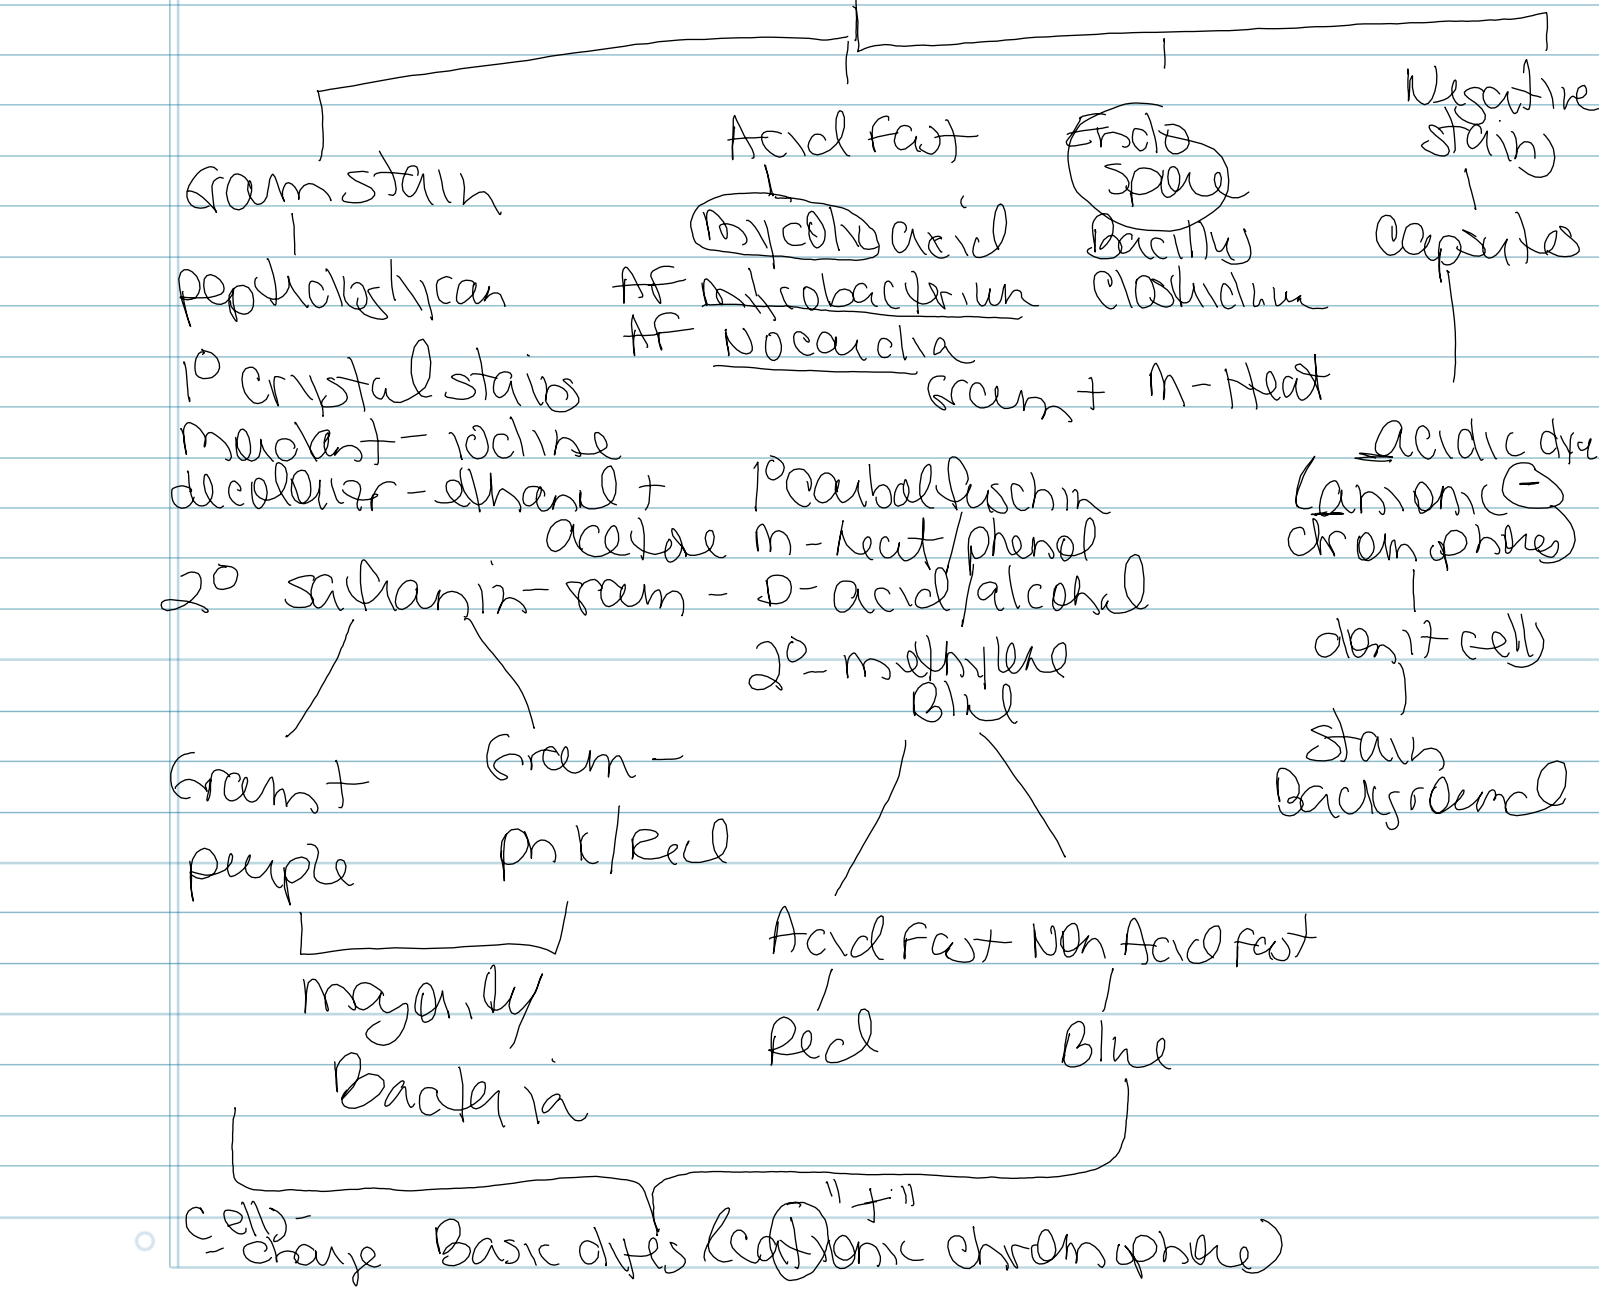 Gram stain
peptidoglycan
1° crystal stains
mordant - iodine
decolorizer - ethanol +
acetone
2° safranin - gram -
Gram +
purple
Gram -
pink/Red
majority
Bacteria
Acid Fast
mycolic acid
AF mycobacterium
AF Nocardia
Gram +
1° carbolfuschin
m - heat/phenol
D - acid/alcohol
2° - methylene
Blue
Acid Fast
Red
Non Acid fast
Blue
Endo
spore
Bacillus
Clostridium
m - Heat
Negative
stain
capsules
acidic dye
(anionic ⊖
chromophores)
don't cells
stain
Background
cells -
- charge
"+"
Basic dyes (cationic chromophore)